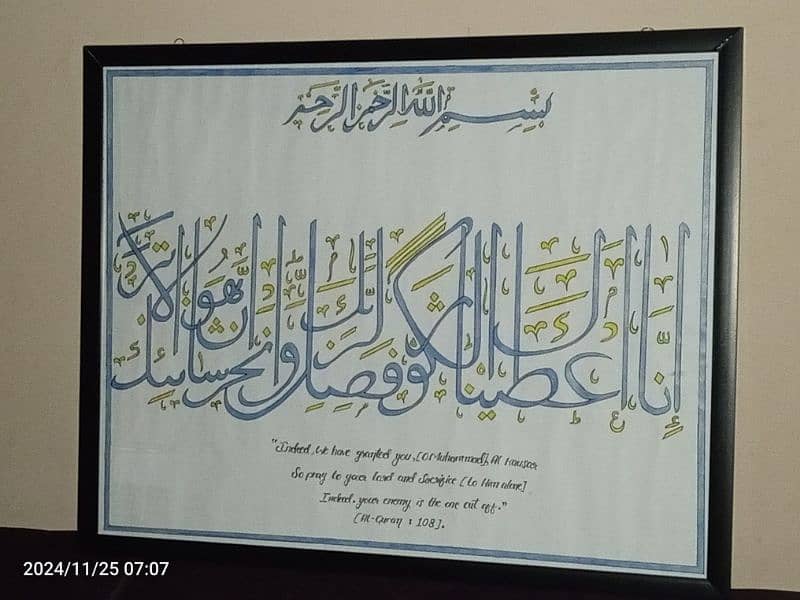 بسم الله الرحمن الرحيم
إنا أعطيناك الكوثر فصل لربك وانحر إن شانئك هو الأبتر
"Indeed, We have granted you, [O Muhammad], Al Kausar
So pray to your Lord and Sacrifice [to Him alone]
Indeed, your enemy is the one cut off."
[Al-Quran : 108].
2024/11/25 07:07